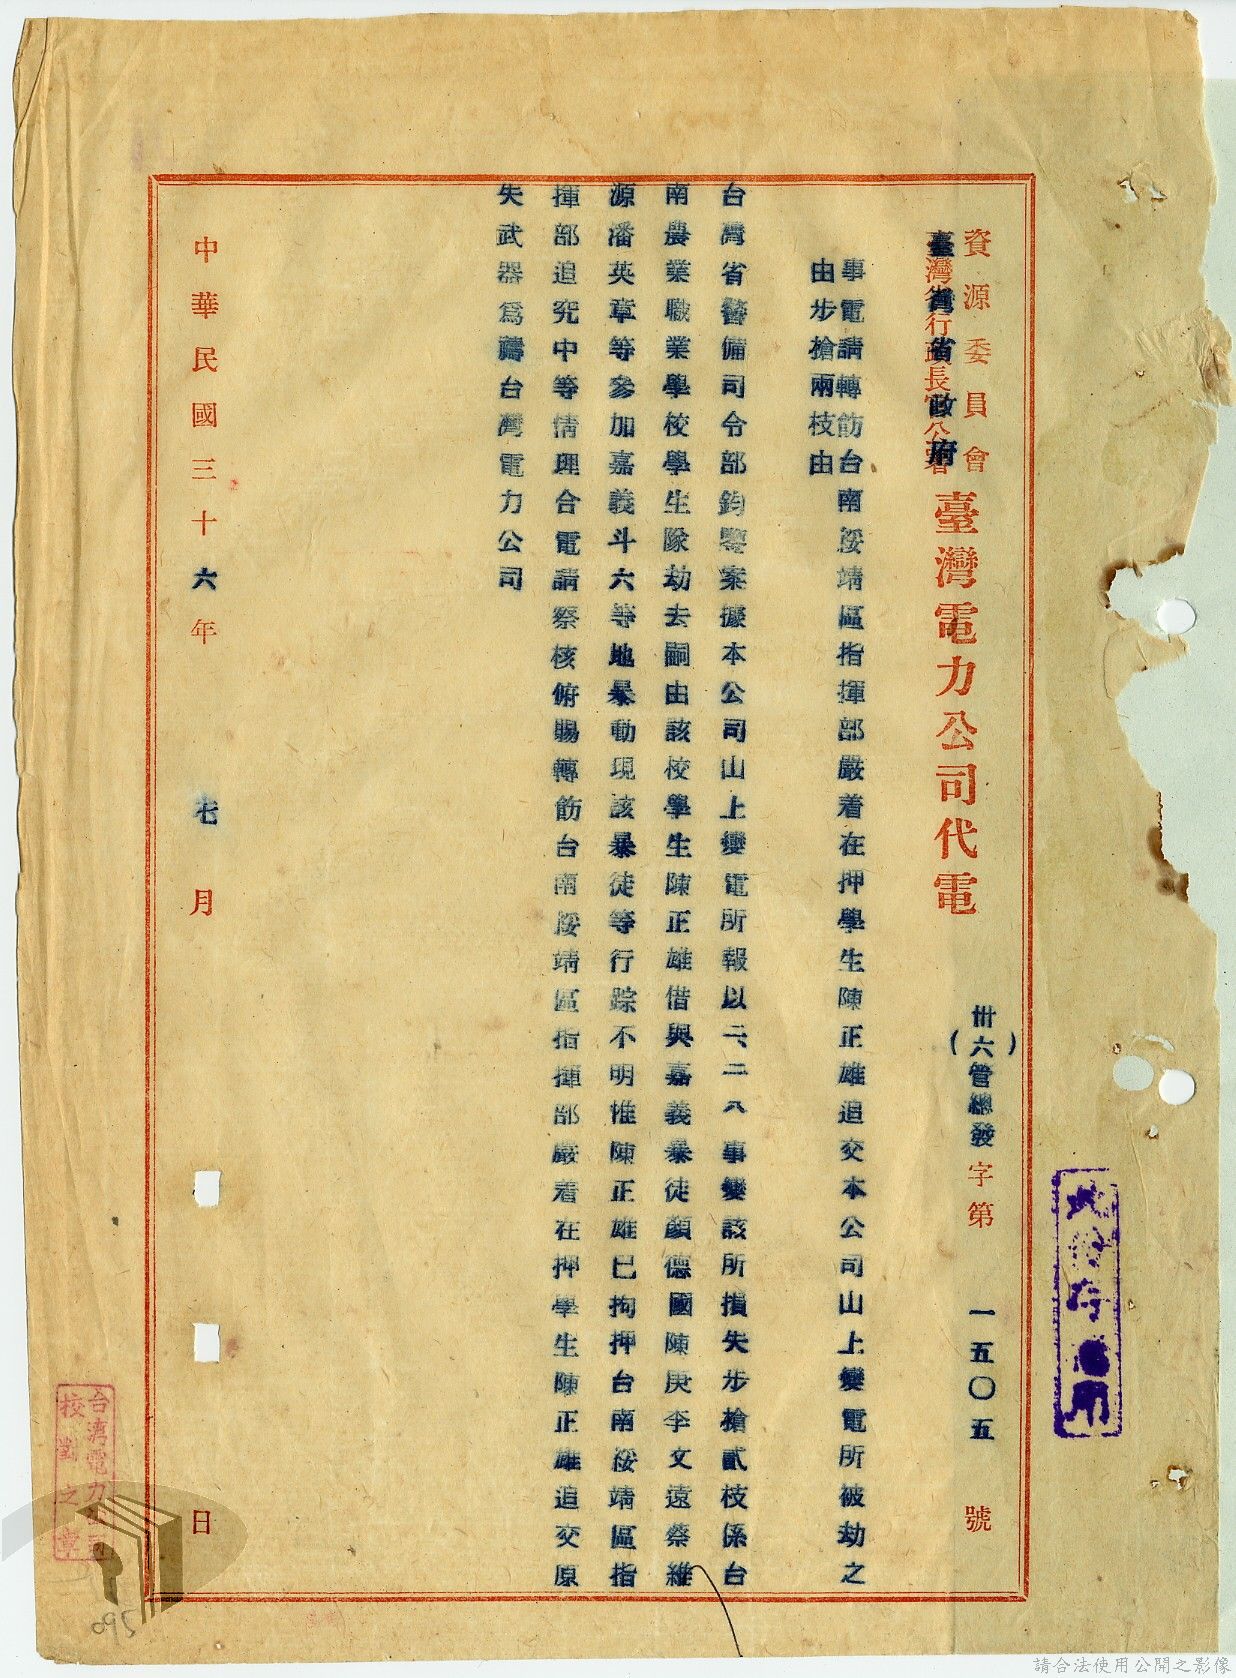 資源委員會
臺灣省行政長官公署
臺灣省政府
臺灣電力公司代電
(卅六)管總發字第一五〇五號
事電請轉飭台南綏靖區指揮部嚴着在押學生陳正雄追交本公司山上變電所被劫之
由步槍兩枝由
台灣省警備司令部鈞鑒案據本公司山上變電所報以二、二八事變該所損失步槍貳枝係台
南農業職業學校學生隊劫去嗣由該校學生陳正雄借與嘉義暴徒顏德國陳庚李文遠蔡維
源潘英章等參加嘉義斗六等地暴動現該暴徒等行踪不明惟陳正雄已拘押台南綏靖區指
揮部追究中等情理合電請察核俯賜轉飭台南綏靖區指揮部嚴着在押學生陳正雄追交原
失武器爲禱台灣電力公司
中華民國三十六年七月日
台灣電力公司
校對之章
095
請合法使用公開之影像